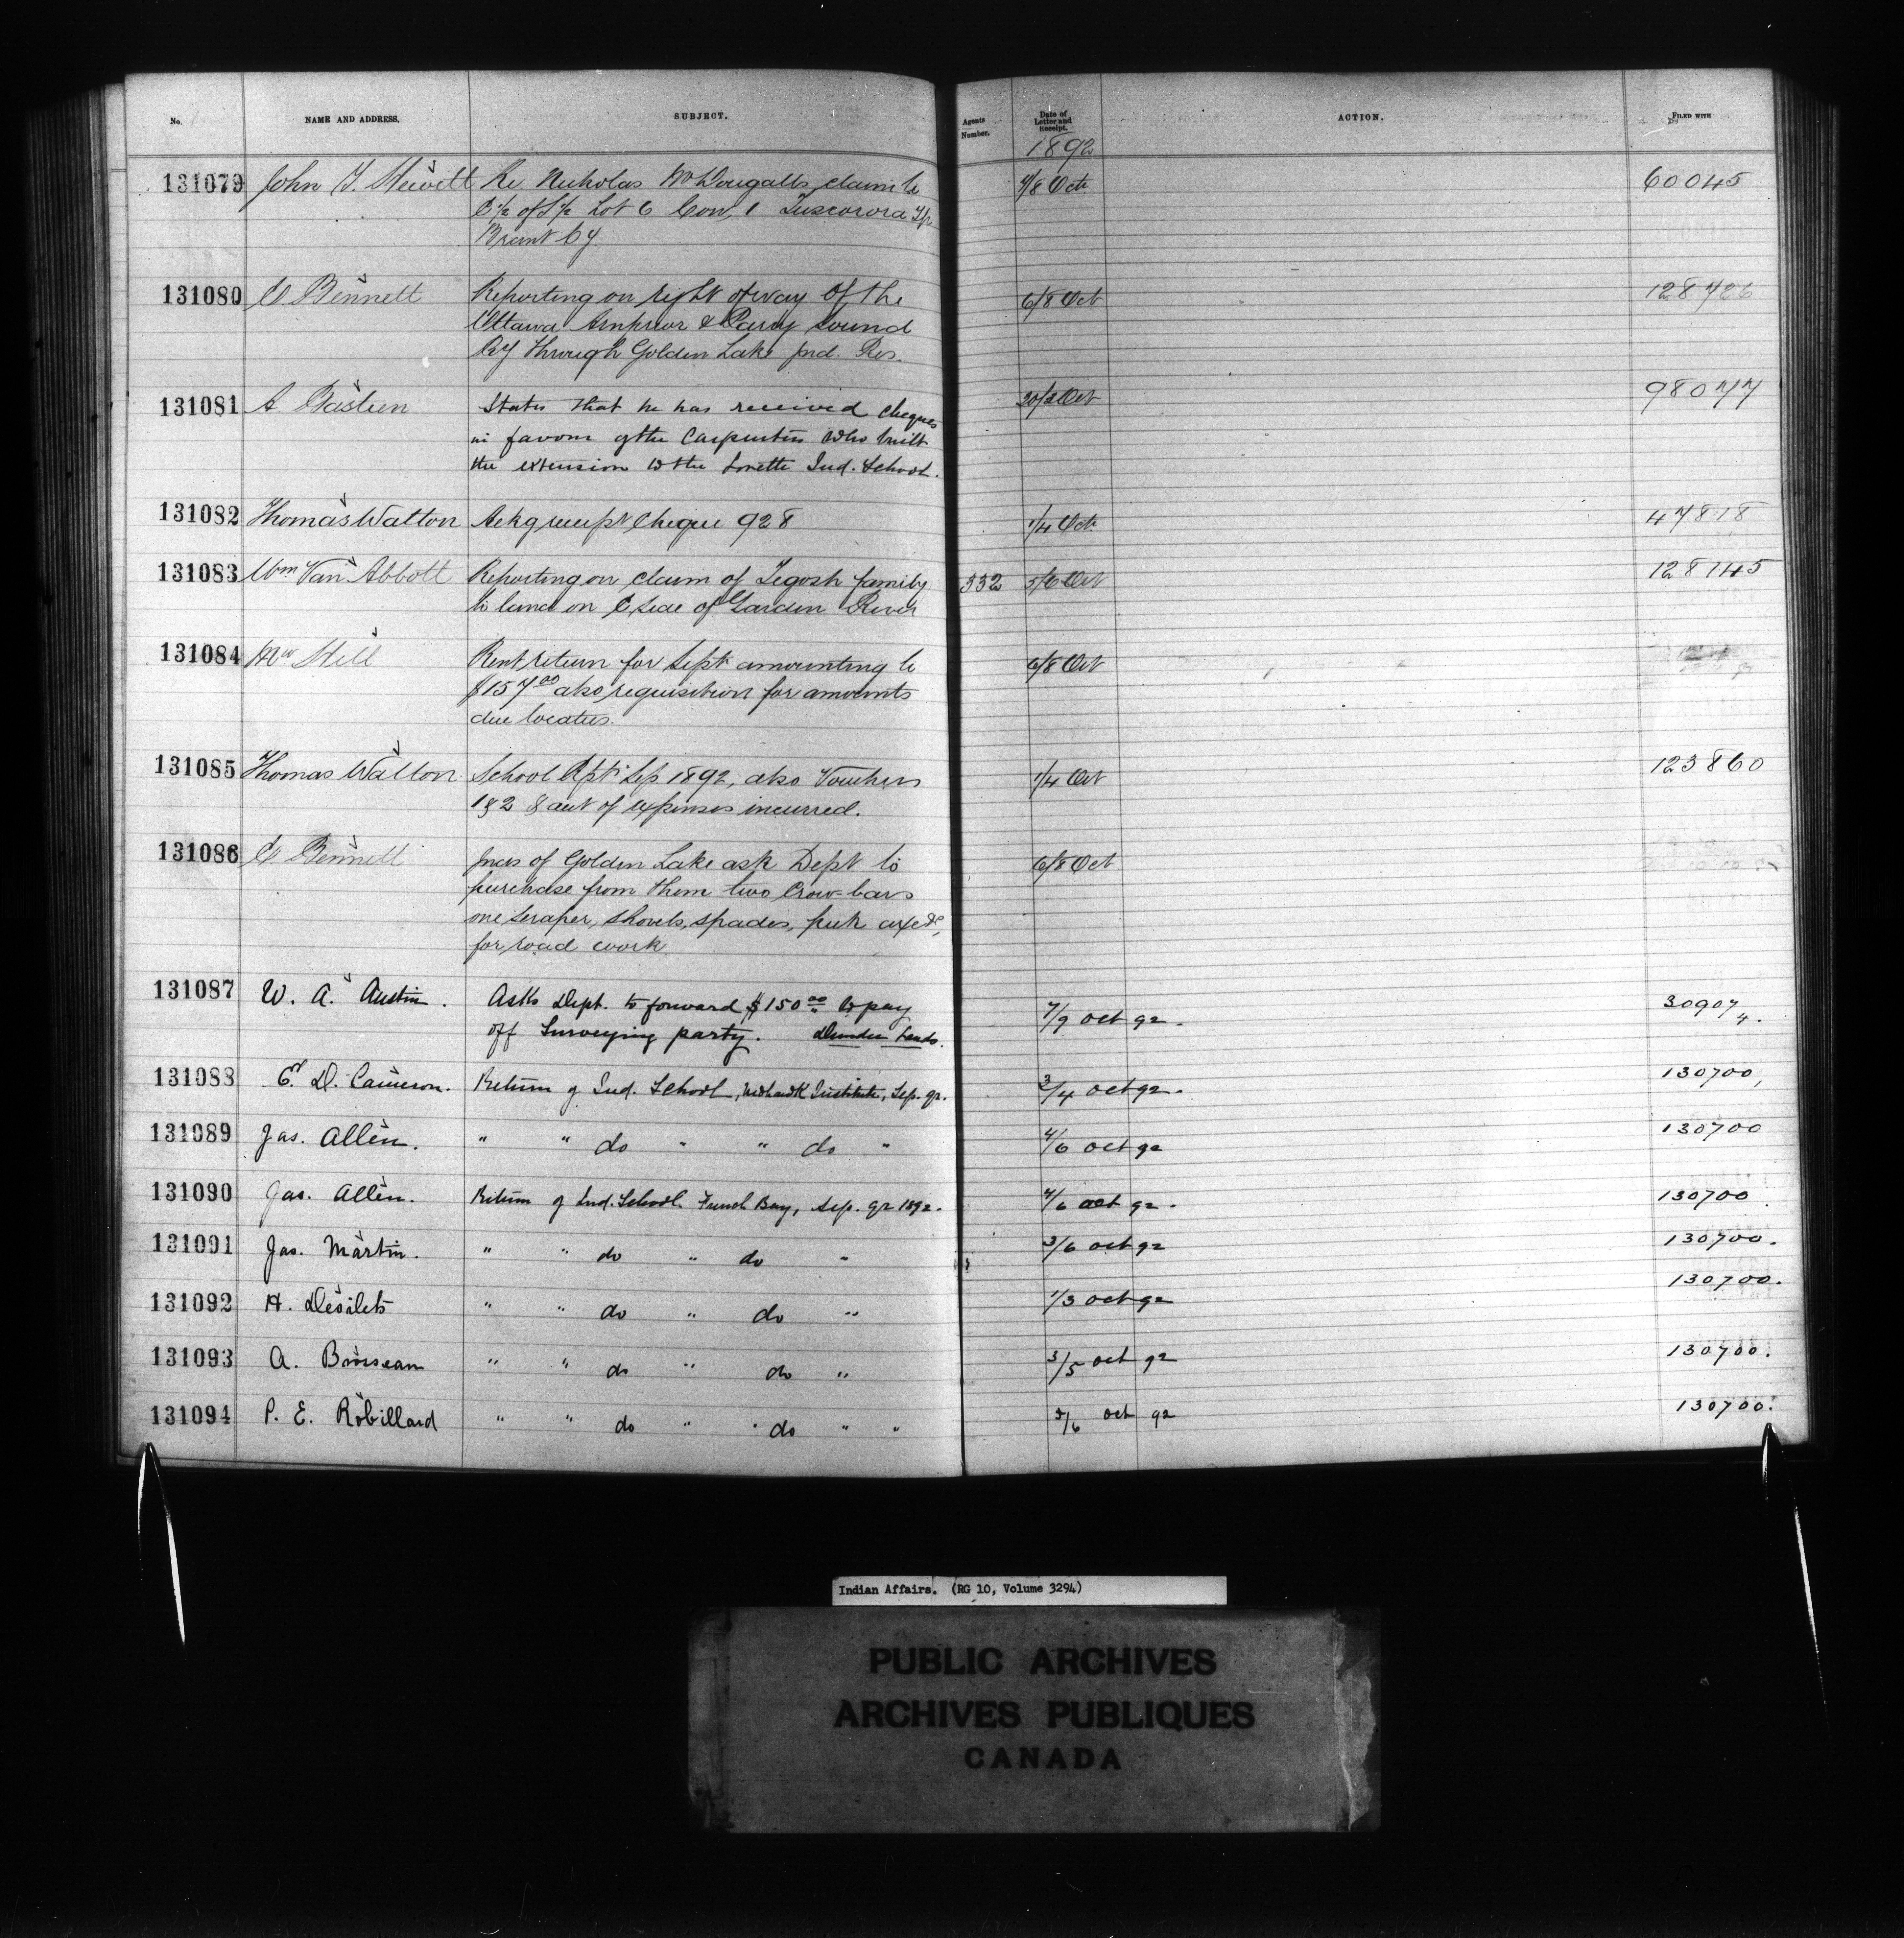 No. NAME AND ADDRESS. SUBJECT. Agents Number. Date of Letter and Receipt. ACTION. FILED WITH
1892
131079 John T. Hewitt Re Nicholas McDougalls claim to 7/8 Oct 60045
E ½ of S ½ Lot 6 Con, 1 Tuscorora Tp
Brant Cy
131080 E Bennett Reporting on right of way of the 6/8 Oct 128726
Ottawa Arnprior & Parry Sound
Ry through Golden Lake Ind. Res.
131081 A Bastien States that he has received cheques Oct 98077
in favour of the Carpenters who built
the extension to the Lorette Ind. School.
131082 Thomas Walton Ackg receipt Cheque 928 1/4 Oct 47818
131083 Wm Van Abbott Reporting on claim of Tegosh family 332 5/6 Oct 128145
to land on E side of Garden River
131084 Mw Hill Rent return for Sept amounting to 6/8 Oct
$157 00 also requisition for amounts
due locatees.
131085 Thomas Walton School Rpts Sep 1892, also Vouchers 1/4 Oct 123860
1 & 2 & acct of expenses incurred.
131086 E Bennett Inds of Golden Lake ask Dept to 6/8 Oct
purchase from them two Crow-bars
one scraper, shovels, spades, pick axe &c,
for road work
131087 W. A. Austin. Asks Dept. to forward $150 00 to pay 7/9 Oct 92. 30907
off Surveying party. Dundee Lands. 4.
131088 E. D. Cameron. Return of Ind. School, Mohawk Institute, Sep. qr. 3/4 Oct 92. 130700,
131089 Jas. Allen. " " do " " do " 4/6 Oct 92 130700
131090 Jas. Allen. Return of Ind. School French Bay, Sep. qr 1892. 4/6 Oct 92. 130700
131091 Jas. Martin. " " do " do " 3/6 Oct 92 130700.
131092 H. Desilets " " do " do " 1/3 Oct 92 130700.
131093 A. Brosseau " " do " do " 3/5 Oct 92 130700.
131094 P. E. Robillard " " do " do " " /6 Oct 92 130700.
Indian Affairs. (RG 10, Volume 3294)
PUBLIC ARCHIVES
ARCHIVES PUBLIQUES
CANADA